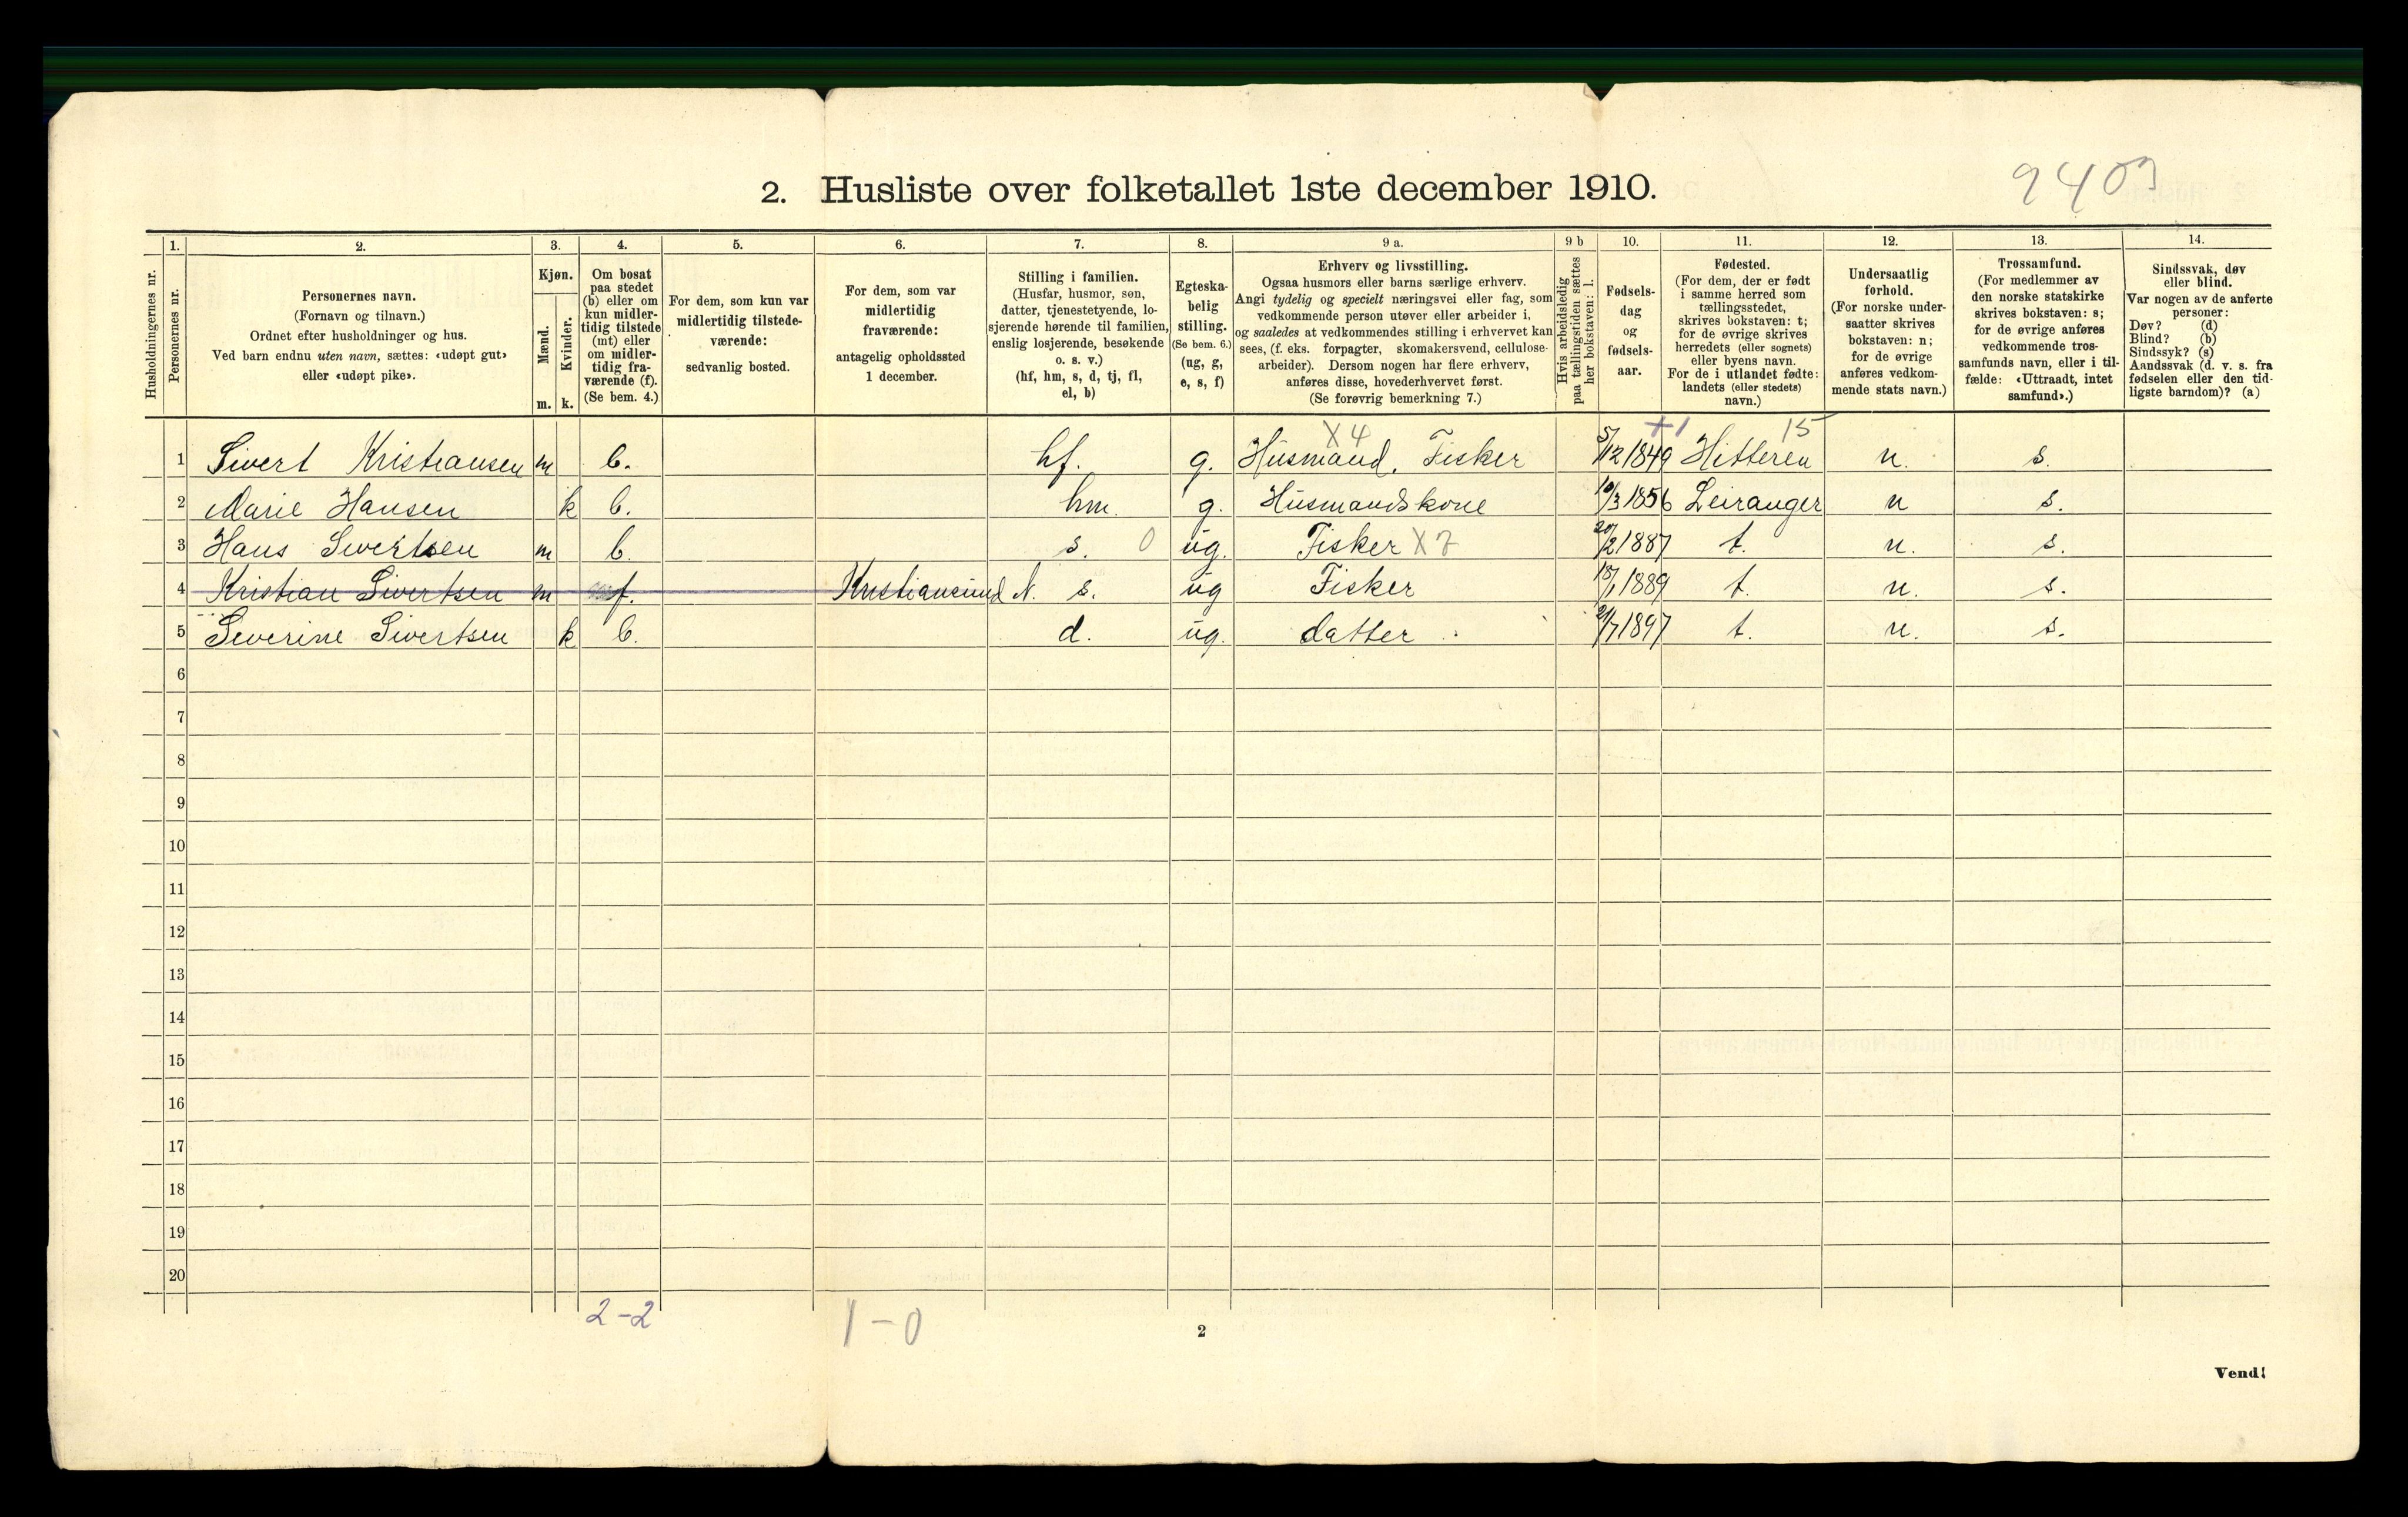 9403
2. Husliste over folketallet 1ste december 1910.
Husholdningernes nr.
1.
Personernes nr.
2.
Personernes navn.
(Fornavn og tilnavn.)
Ordnet efter husholdninger og hus.
Ved barn endnu uten navn, sættes: «udøpt gut»
eller «udøpt pike».
3.
Kjøn.
Mænd.
Kvinder.
m. k.
4.
Om bosat
paa stedet
(b) eller om
kun midler-
tidig tilstede
(mt) eller
om midler-
tidig fra-
værende (f).
(Se bem. 4.)
5.
For dem, som kun var
midlertidig tilstede-
værende:
sedvanlig bosted.
6.
For dem, som var
midlertidig
fraværende:
antagelig opholdssted
1 december.
7.
Stilling i familien.
(Husfar, husmor, søn,
datter, tjenestetyende, lo-
sjerende hørende til familien,
enslig losjerende, besøkende
o. s. v.)
(hf, hm, s, d, tj, fl,
el, b)
8.
Egteska-
belig
stilling.
(Se bem. 6.)
(ug, g,
e, s, f)
9 a.
Erhverv og livsstilling.
Ogsaa husmors eller barns særlige erhverv.
Angi tydelig og specielt næringsvei eller fag, som
vedkommende person utøver eller arbeider i,
og saaledes at vedkommendes stilling i erhvervet kan
sees, (f. eks. forpagter, skomakersvend, cellulose-
arbeider). Dersom nogen har flere erhverv,
anføres disse, hovederhvervet først.
(Se forøvrig bemerkning 7.)
9 b
Hvis arbeidsledig
paa tællingstiden sættes
her bokstaven: l.
10.
Fødsels-
dag
og
fødsels-
aar.
11.
Fødested.
(For dem, der er født
i samme herred som
tællingsstedet,
skrives bokstaven: t;
for de øvrige skrives
herredets (eller sognets)
eller byens navn.
For de i utlandet fødte:
landets (eller stedets)
navn.)
12.
Undersaatlig
forhold.
(For norske under-
saatter skrives
bokstaven: n;
for de øvrige
anføres vedkom-
mende stats navn.)
13.
Trossamfund.
(For medlemmer av
den norske statskirke
skrives bokstaven: s;
for de øvrige anføres
vedkommende tros-
samfunds navn, eller i til-
fælde: «Uttraadt, intet
samfund».)
14.
Sindssvak, døv
eller blind.
Var nogen av de anførte
personer:
Døv? (d)
Blind? (b)
Sindssyk? (s)
Aandssvak (d. v. s. fra
fødselen eller den tid-
ligste barndom)? (a)
X 4 +1 15
1 Sivert Kristiansen m b. hf. g. Husmand. Fisker 5/12 1849 Hitteren n. s.
2 Marie Hansen k b. hm. g. Husmandskone 10/3 1856 Leiranger n s.
3 Hans Sivertsen m b. s. 0 ug. Fisker X 7 20/2 1887 t. n. s.
4 Kristian Sivertsen m f. Kristiansund N. s. ug Fisker 18/1 1889 t. n. s.
5 Severine Sivertsen k b. d. ug. datter 21/7 1897 t. n. s.
6
7
8
9
10
11
12
13
14
15
16
17
18
19
20
2-2 1-0
2
Vend!